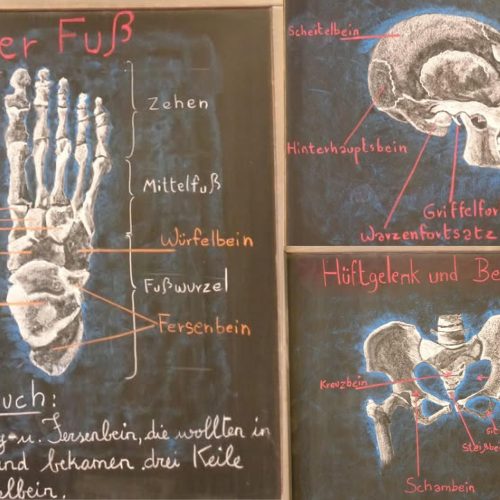 er Fuß
Zehen
Mittelfuß
Würfelbein
Fußwurzel
Fersenbein
uch:
g-u. Fersenbein, die wollten in
und bekamen drei Keile
elbein.
Scheitelbein
Hinterhauptsbein
Griffelfor
Warzenfortsatz
Hüftgelenk und Be
Kreuzbein
sit
Steißbe
Schambein